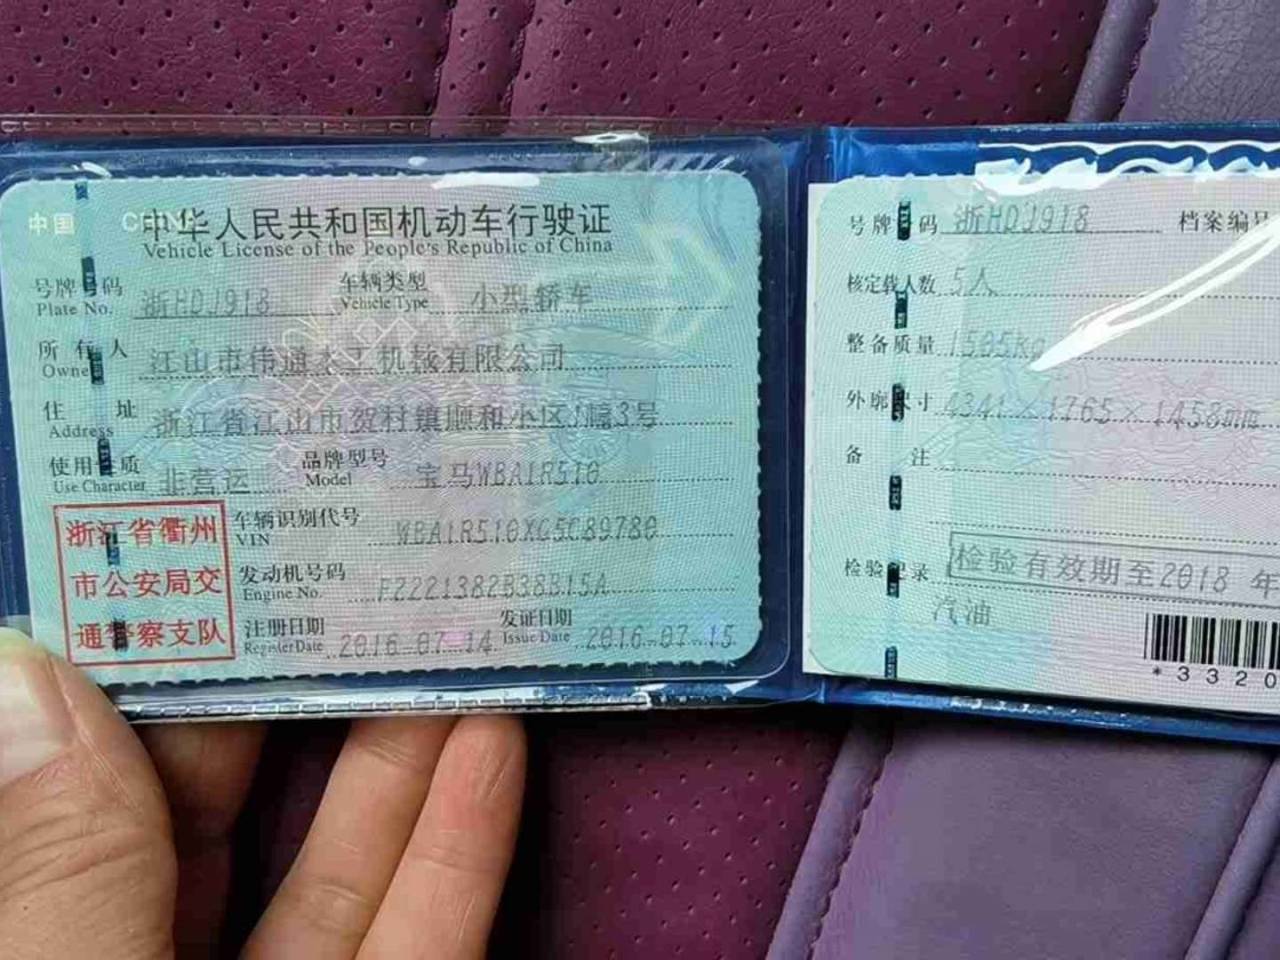 中国 CHINA
中华人民共和国机动车行驶证
Vehicle License of the People's Republic of China
号牌号码 浙HDJ918 车辆类型 小型轿车
Plate No. Vehicle Type
所有人 江山市伟通木工机械有限公司
Owner
住址 浙江省江山市贺村镇顺和小区1幢3号
Address
使用性质 非营运 品牌型号 宝马WBA1R510
Use Character Model
浙江省衢州
市公安局交
通警察支队
车辆识别代号 WBA1R510XG5C89780
VIN
发动机号码 F2221382B38B15A
Engine No.
注册日期 2016-07-14 发证日期 2016-07-15
Register Date Issue Date
号牌号码 浙HDJ918 档案编号
核定载人数 5人
整备质量 1505kg
外廓尺寸 4341×1765×1458mm
备注
检验记录 检验有效期至2018 年
汽油
*3320